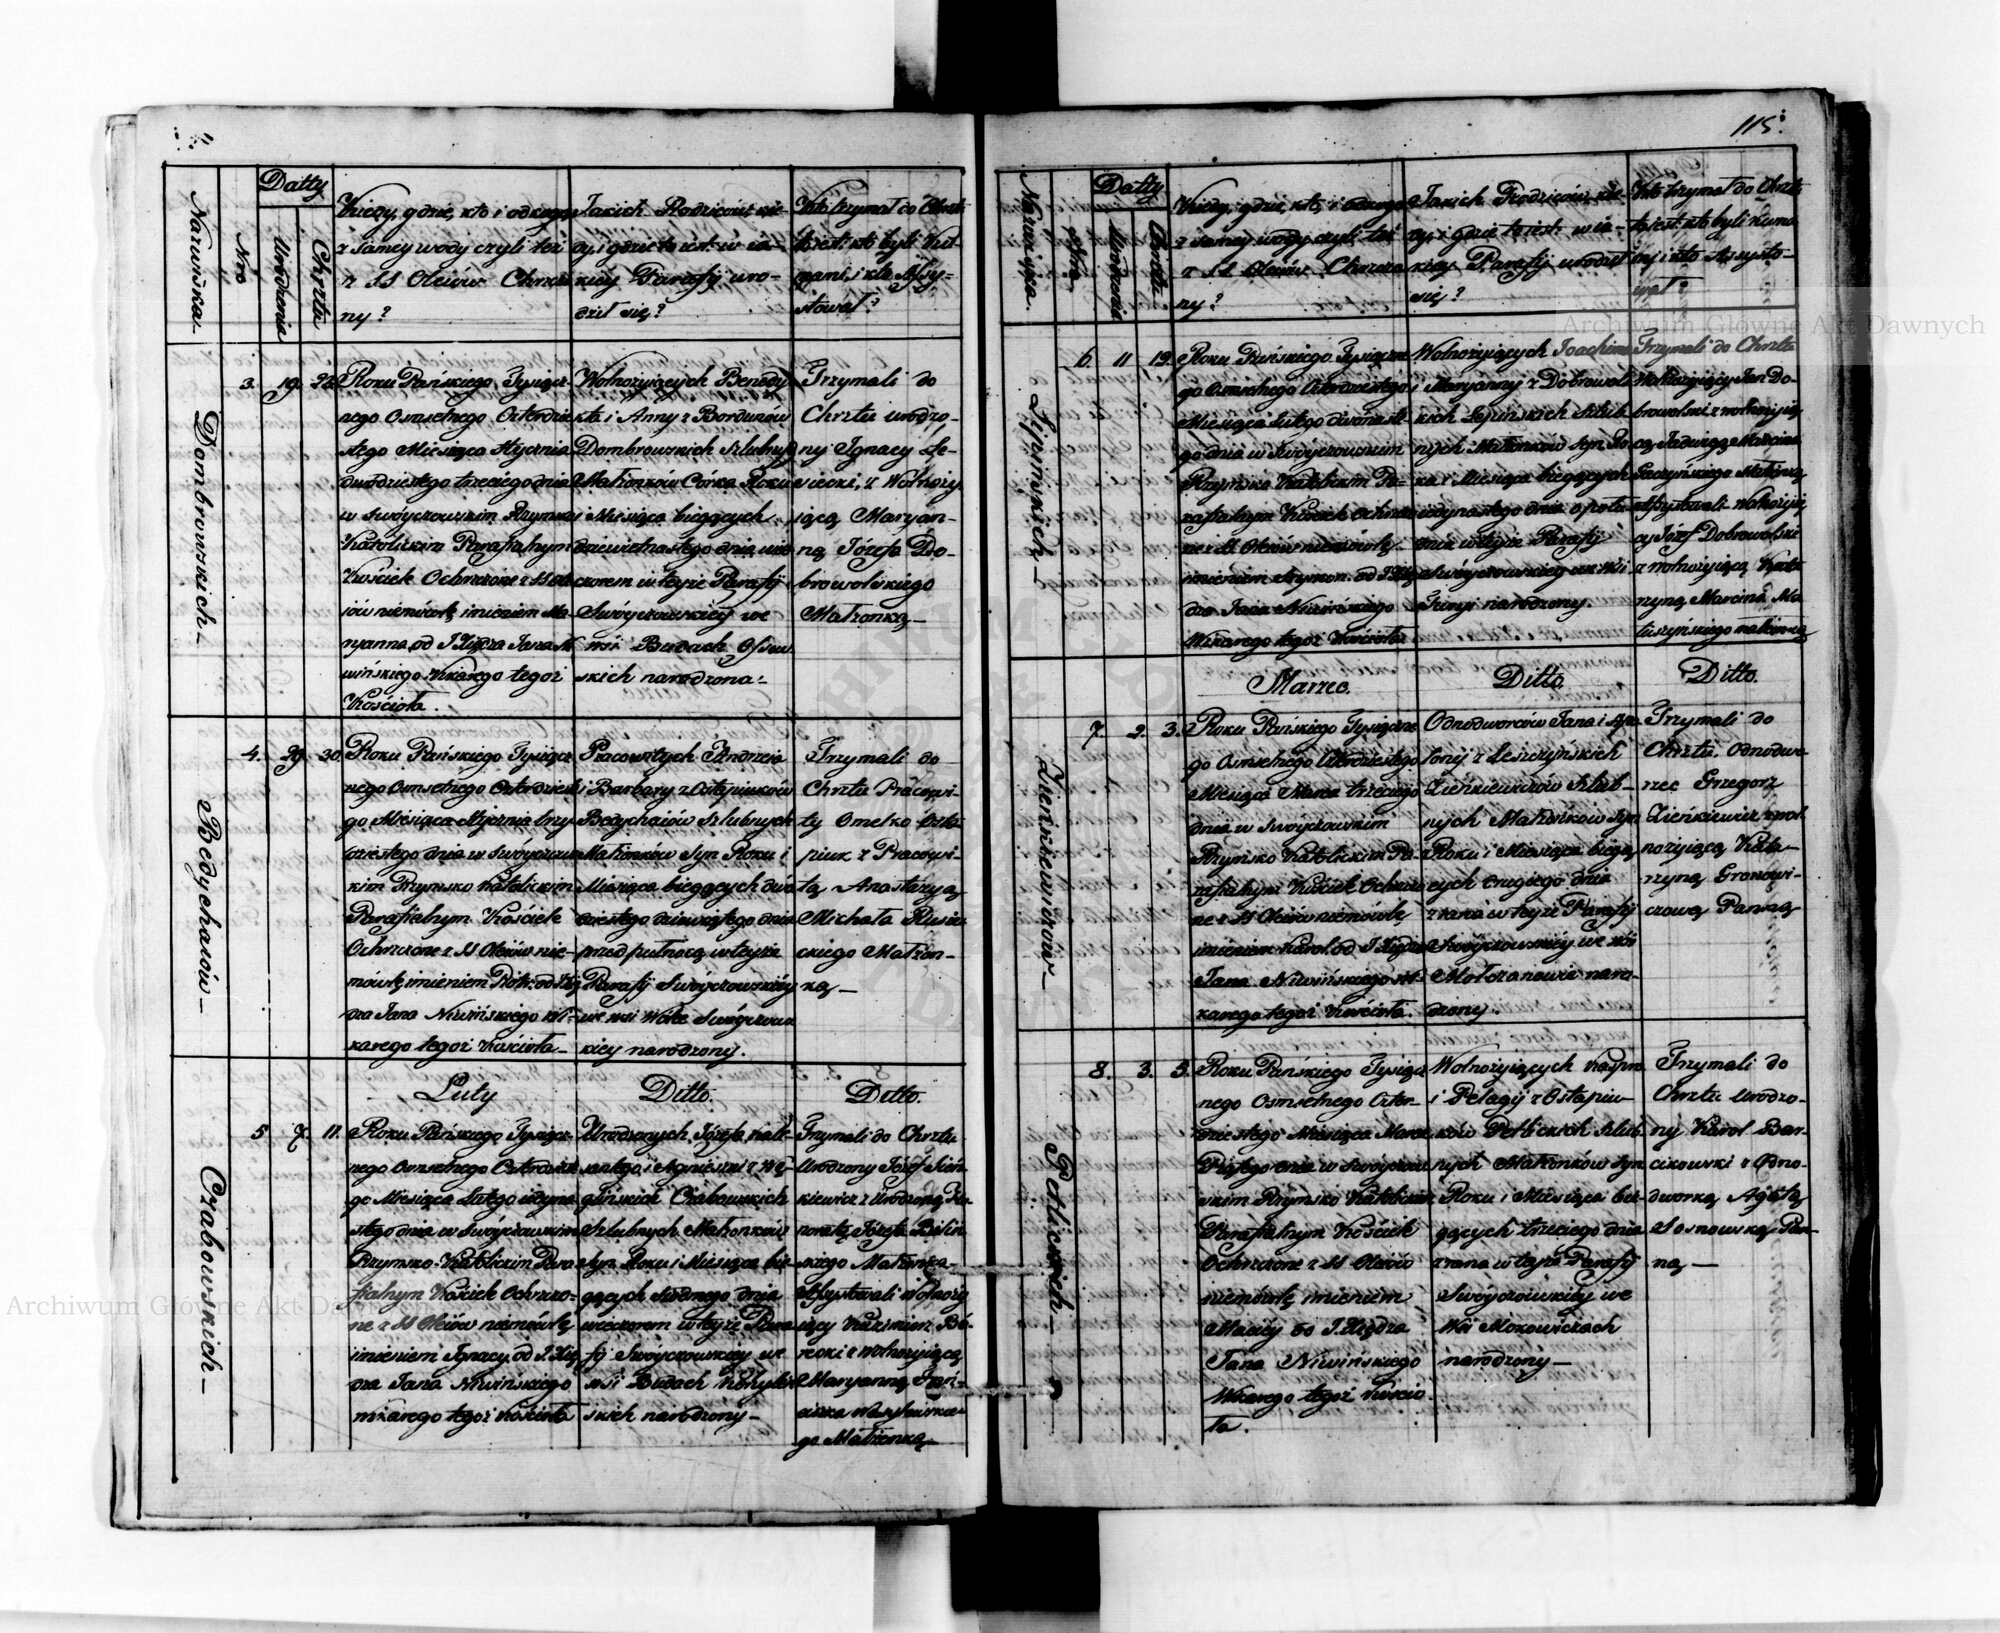 Datty
Nazwiska.
Nro
Urodzenia
Chrztu
Kiedy, gdzie, kto i od kogo
z samey wody czyli też
z SS Oleiów Chrzczo
ny?
Jakich Rodziców kie
dy, i gdzie to iest: w ia-
kiey Parafij uro-
dził się?
Kto trzymał do Chrztu
to iest: kto byli Kuma
mi i kto Assy-
stował?
Dombrowskich_
3. 19. 23.
Roku Pańskiego Tysiącz
nego Osmsetnego Czterdzie
stego Miesiąca Stycznia
dwódziestego trzeciego dnia
w Swóyczowskim Rzymsko
Katolickim Parafialnym
Kościele Ochrzczone z SS Ole
iów niemówlę imieniem Ma
ryanna, od J. Xiędza Jana Ni
wińskiego Wikarego tegoż
Kościoła.
Wolnożyiących Benedy
kta i Anny z Bordunów
Dombrowskich Szlubnych
Małżonków Córka Roku
i Miesiąca bieżących
dziewiętnastego dnia, wie
czorem w teyże Parafij
Swóyczowskiey we
wsi Budach Ossow
skich narodzona.
Trzymali do
Chrztu urodzo-
ny Ignacy Le-
siecki, z Wolnoży
iącą Maryan-
ną Józefa Do-
browolskiego
Małżonką_
Bedychaiów_
4. 29. 30.
Roku Pańskiego Tysiącz
nego Osmsetnego Czterdzieste
go Miesiąca Stycznia trzy
dziestego dnia w Swóyczows
kim Rzymsko Katolickim
Parafialnym Kościele
Ochrzczone z SS Oleiów nie-
mówlę imieniem Piotr od J. Xię
dza Jana Niwińskiego Wi-
karego tegoż Kościoła_
Pracowitych Andrzeia
i Barbary z Ostapiuków
Bedychaiów Szlubnych
Małżonków Syn Roku i
Miesiąca bieżących dwó
dziestego dziewiątego dnia
przed pułnocą w teyże
Parafij Swóyczowskiéy
we wsi Wólce Swóyczows
kiey narodzony.
Trzymali do
Chrztu Pracowi-
ty Omelko Osta
piuk z Pracowi-
tą Anastazyą
Michała Rusie
ckiego Małżon-
ką_
Luty
Ditto.
Ditto.
Czabowskich_
5 7. 11.
Roku Pańskiego Tysiącz-
nego Osmsetnego Czterdzieste
go Miesiąca Lutego iedyna
stego dnia w Swóyczowskim
Rzymsko-Katolickim Para
fialnym Kościele Ochrzczo-
ne z SS Oleiów niemówlę
imieniem Ignacy, od J. Xię
dza Jana Niwińskiego
Wikarego tegoż Kościoła
Urodzonych Józefa Kale-
santego i Agnieszki z Wę-
glińskich Czabowskich
Szlubnych Małżonków
Syn Roku i Miesiąca bie-
żących siódmego dnia
wieczorem w teyże Para
fij Swóyczowskiey we
wsi Budach
skich narodzony_
Trzymali do Chrztu
Urodzony Józef Zień-
kiewicz z Urodzoną Ho
noratą Józefa Bielin
skiego Małżonką.
Assystowali Wolnoży
iący Kazimierz
z wolnożyiącą
Maryanną Fran-
ciszka
go Małżonką_
115.
Datty
Nazwiska.
Nro.
Urodzenia
Chrztu.
Kiedy, gdzie, kto, i od kogo
z samey wody, czyli też
z SS Oleiów Chrzczo
ny?
Jakich Rodziców, kie-
dy i gdzie to iest: w ia-
kiey Parafij urodził
się?
Kto trzymał do Chrztu
to iest: kto byli Kuma
mi i kto Assysto-
wał?
6 11 12.
Roku Pańskiego Tysiączne
go Osmsetnego Czterdziestego
Miesiąca Lutego dwónaste
go dnia w Swóyczowskim
Rzymsko Katolickim Pa-
rafialnym Kościele Ochrzczo
ne z SS Oleiów niemówlę
imieniem Szymon. od J. Xię
dza Jana Niwińskiego
Wikarego tegoż Kościoła
Wolnożyiących Joachima
i Maryanny z Dobrowol
skich Szlub
nych Małżonków Syn Ro
ku i Miesiąca bieżących
iedynastego dnia o połu
dniu w teyże Parafij
Swóyczowskiey we wsi
narodzony.
Trzymali do Chrztu
Wolnożyiący Jan Do-
browolski z wolnożyią
cą Jadwigą Marcina
Małżonką
Assystowali wolnożyią
cy Józef Dobrowolski
z wolnożyiącą Kata
rzyną Marcina Ma
tuszyńskiego małżonką
Marzec.
Ditto.
Ditto.
Zienkiewiczów_
7. 2. 3.
Roku Pańskiego Tysiączne
go Osmsetnego Czterdziestego
Miesiąca Marca trzeciego
dnia w Swóyczowskim
Rzymsko Katolickim Pa-
rafialnym Kościele Ochrzczo
ne z SS Oleiów niemówlę
imieniem Karol. od J. Xiędza
Jana Niwińskiego Wi-
karego tegoż Kościoła.
Odnodworców Jana i Apo
lonij z Leszczyńskich
Zieńkiewiczów Szlub-
nych Małżonków Syn
Roku i Miesiąca bieżą
cych drugiego dnia
z rana w teyże Parafij
Swóyczowskiéy we wsi
Mołczanowie naro-
dzony.
Trzymali do
Chrztu. Odnodwo-
rzec Grzegorz
Zieńkiewicz z wol
nożyiącą Kata-
rzyną Gronowi-
czową Panną
Petlickich_
8. 3. 5.
Roku Pańskiego Tysiącz
nego Osmsetnego Czter-
dziestego Miesiąca Marca
Piątego dnia w Swóyczow
skim Rzymsko Katolickim
Parafialnym Kościele
Ochrzczone z SS Oleiów
niemówlę imieniem
Maciéy od J. Xiędza
Jana Niwińskiego
Wikarego tegoż Kościo
ła.
Wolnożyiących Kaspra
i Pelagij z Ostapiu-
ków Petlickich Szlub-
nych Małżonków Syn
Roku i Miesiąca bie-
żących trzeciego dnia
z rana w teyże Parafij
Swóyczowskiéy we
wsi Mokowiczach
narodzony_
Trzymali do
Chrztu Urodzo-
ny Karol Bar-
cikowski z Odno-
dworką Agatą
Sosnowską Pan-
ną_
Archiwum Główne Akt Dawnych
Archiwum Główne Akt Dawnych